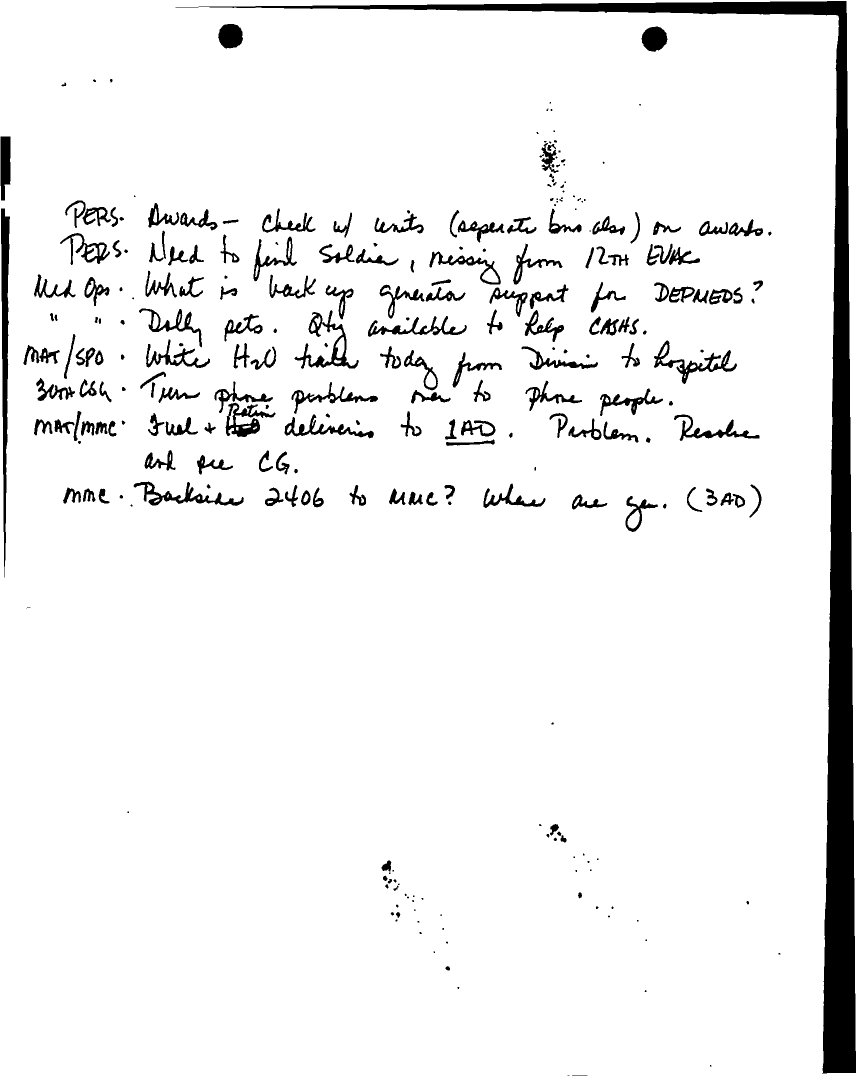 PERS. Awards — check w/ units (seperate bns also) on awards.
PERS. Need to find Soldier, missing from 12TH EVAC
Med Ops. What is back up generator support for DEPMEDS?
" " . Dolly sets. Qty available to help CASHS.
MAT/SPO . White H2O trailer today from Division to hospital
30TH CSG . Turn phone problems over to phone people.
MAT/MMC . Fuel + Ration deliveries to 1AD. Problem. Resolve
and see CG.
MMC . Backside 2406 to MMC? Where are gen. (3AD)